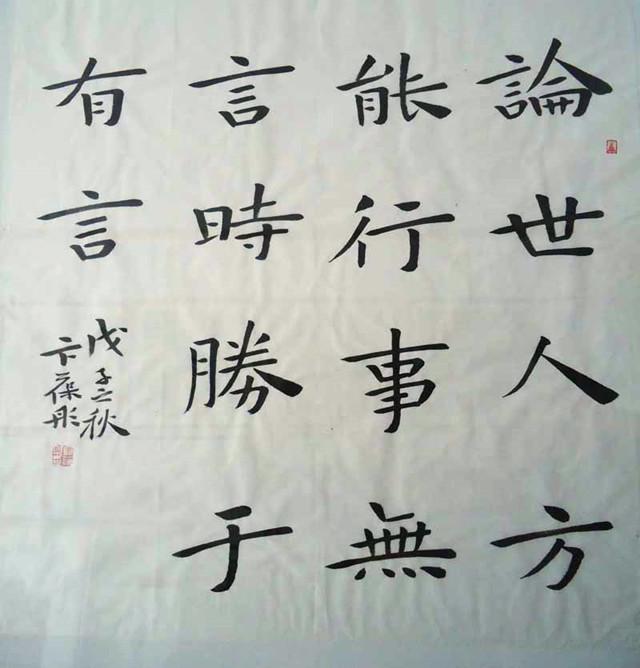 論世人方
能行事無
言時勝于
有言
戊子之秋
卞葆彤